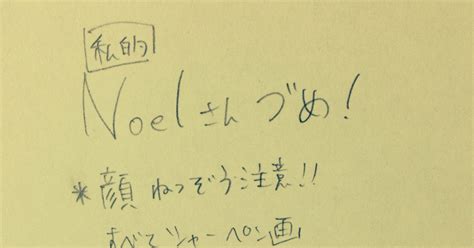 私的
Noelさんづめ!
*顔ねつぞう注意!!
すべてシャーペン画